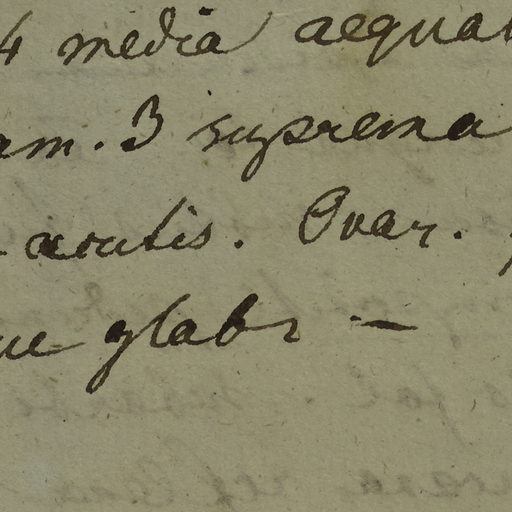 4 media aequat
am. 3 suprema
acutis. Ovar.
ue glabr —